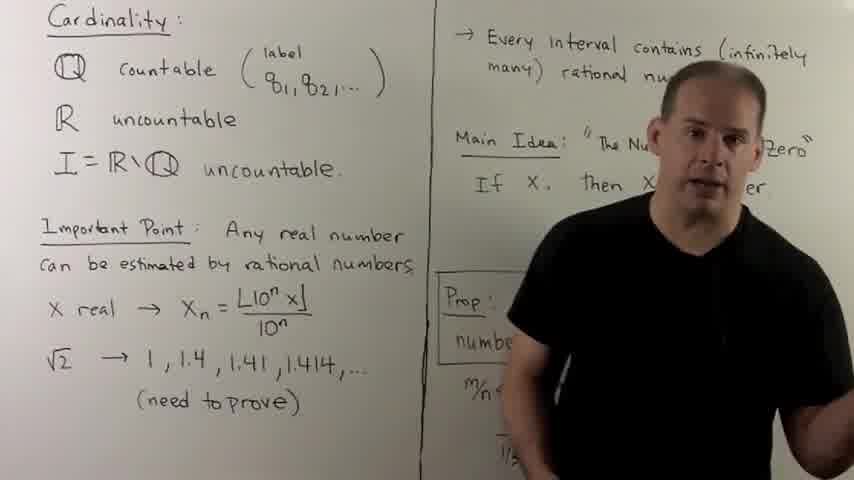 Cardinality:
ℚ countable ( label q₁, q₂, ... )
ℝ uncountable
I = ℝ\ℚ uncountable.
Important Point: Any real number
can be estimated by rational numbers
x real → xₙ = ⌊10ⁿ x⌋ / 10ⁿ
√2 → 1, 1.4, 1.41, 1.414, ...
(need to prove)
→ Every interval contains (infinitely
many) rational
Main Idea: "The Zero"
If x, then x
Prop:
m/n